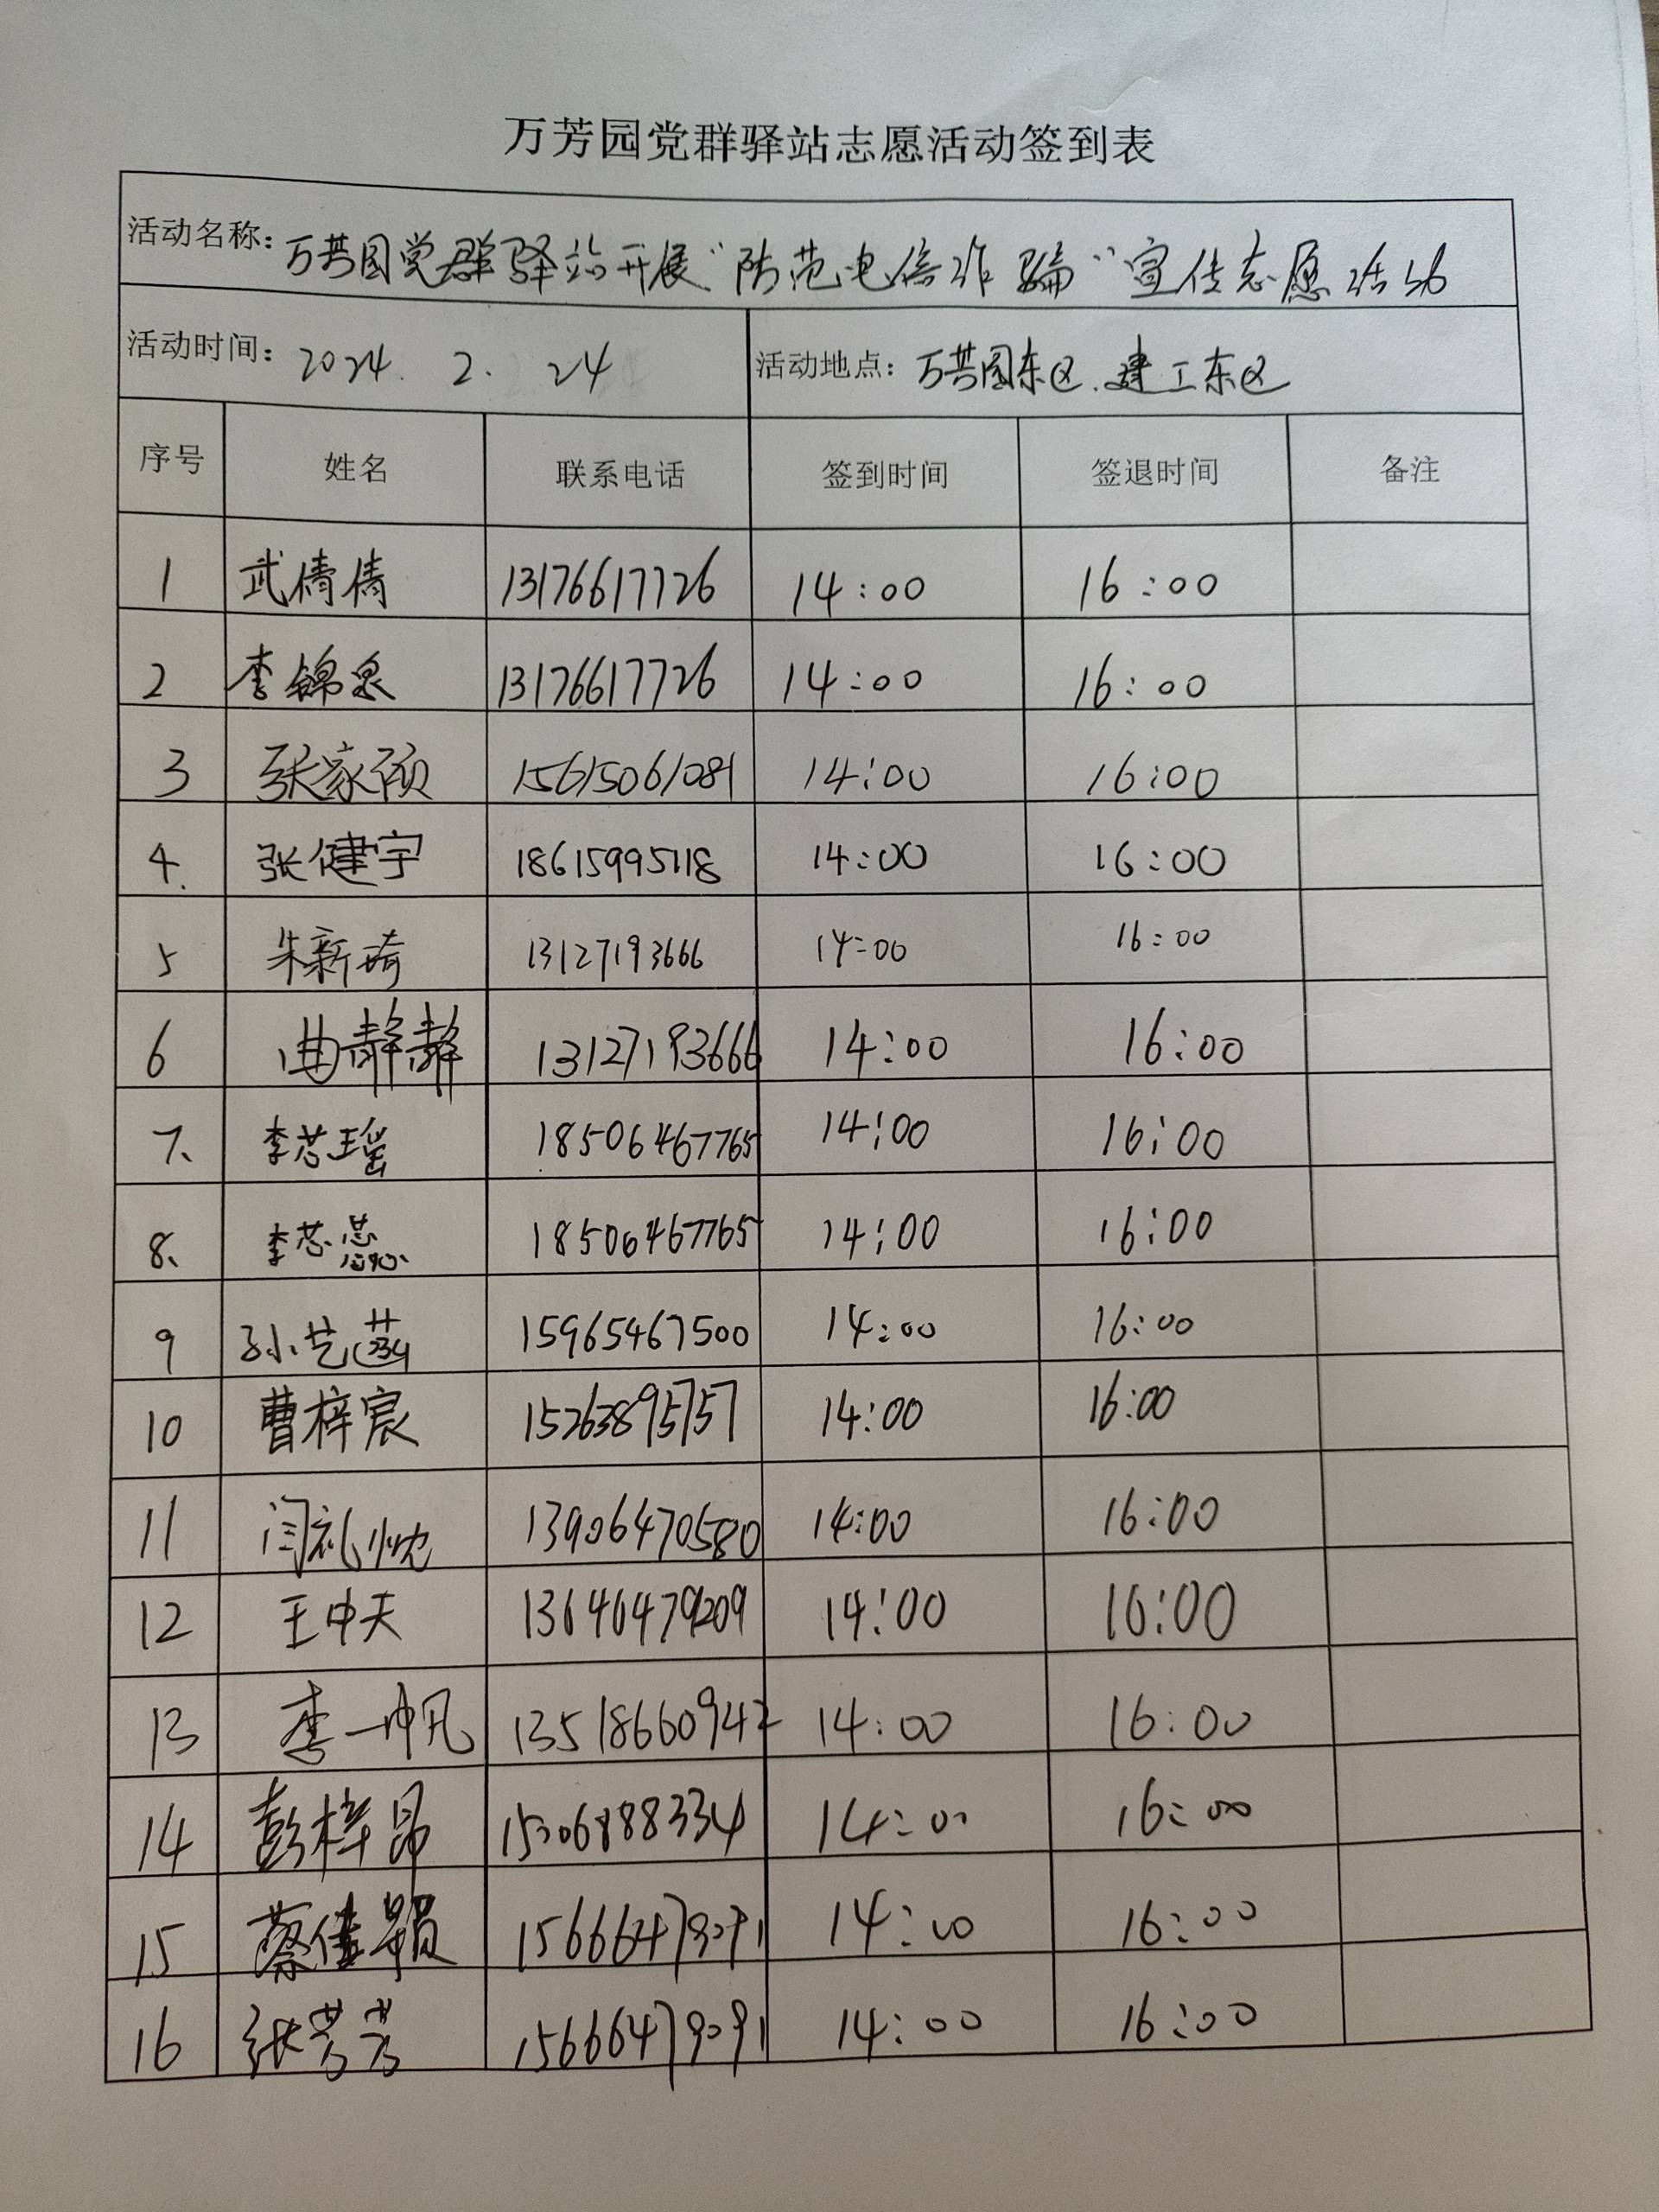 万芳园党群驿站志愿活动签到表
活动名称: 万芳园党群驿站开展“防范电信诈骗”宣传志愿活动
活动时间: 2024. 2. 24 活动地点: 万芳园东区.建工东区
序号 姓名 联系电话 签到时间 签退时间 备注
1 武倩倩 13176617726 14:00 16:00
2 李锦泉 13176617726 14:00 16:00
3 张家硕 15615061081 14:00 16:00
4. 张健宇 18615995118 14:00 16:00
5 朱新琦 13127193666 14:00 16:00
6 曲静静 13127193666 14:00 16:00
7、 李芯瑶 18506467765 14:00 16:00
8、 李芯 18506467765 14:00 16:00
9 孙艺菡 15965467500 14:00 16:00
10 曹梓宸 15263895757 14:00 16:00
11 闫礼 13906470580 14:00 16:00
12 王中天 13646479209 14:00 16:00
13 李一帆 13518660942 14:00 16:00
14 彭梓昂 14:00 16:00
15 蔡佳 15666479091 14:00 16:00
16 张芳芳 15666479091 14:00 16:00